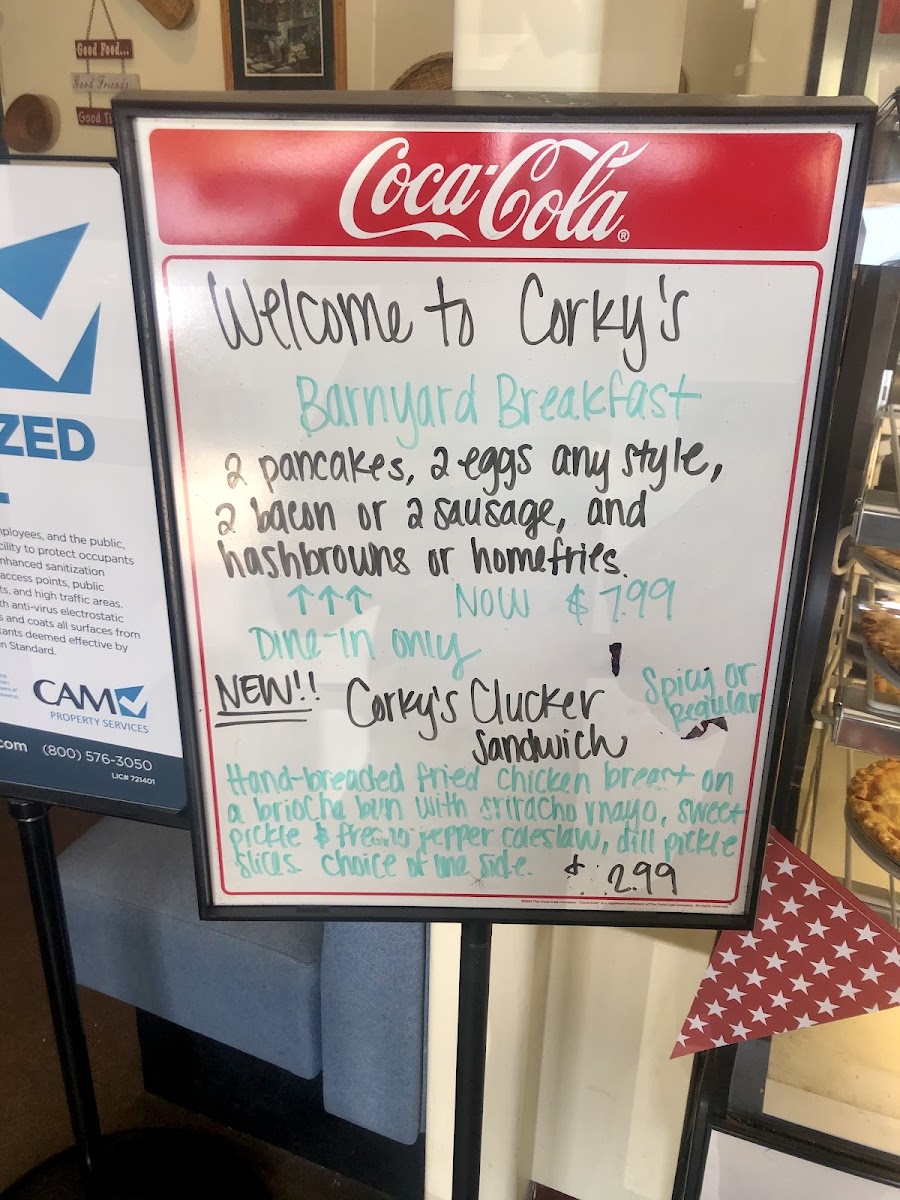 Good Food...
Good Friends
Good Ti
Coca-Cola®
Welcome to Corky's
Barnyard Breakfast
2 pancakes, 2 eggs any style,
2 bacon or 2 sausage, and
hashbrowns or homefries.
↑↑↑ NOW $7.99
Dine-in only
NEW!! Corky's Clucker
Sandwich
Spicy or
Regular
Hand-breaded fried chicken breast on
a brioche bun with sriracha mayo, sweet
pickle & fresno pepper coleslaw, dill pickle
slices choice of one side. $ 2.99
ZED
mployees, and the public,
cility to protect occupants
nhanced sanitization
access points, public
ts, and high traffic areas.
th anti-virus electrostatic
s and coats all surfaces from
tants deemed effective by
n Standard.
CAM
PROPERTY SERVICES
.com (800) 576-3050
LIC# 721401